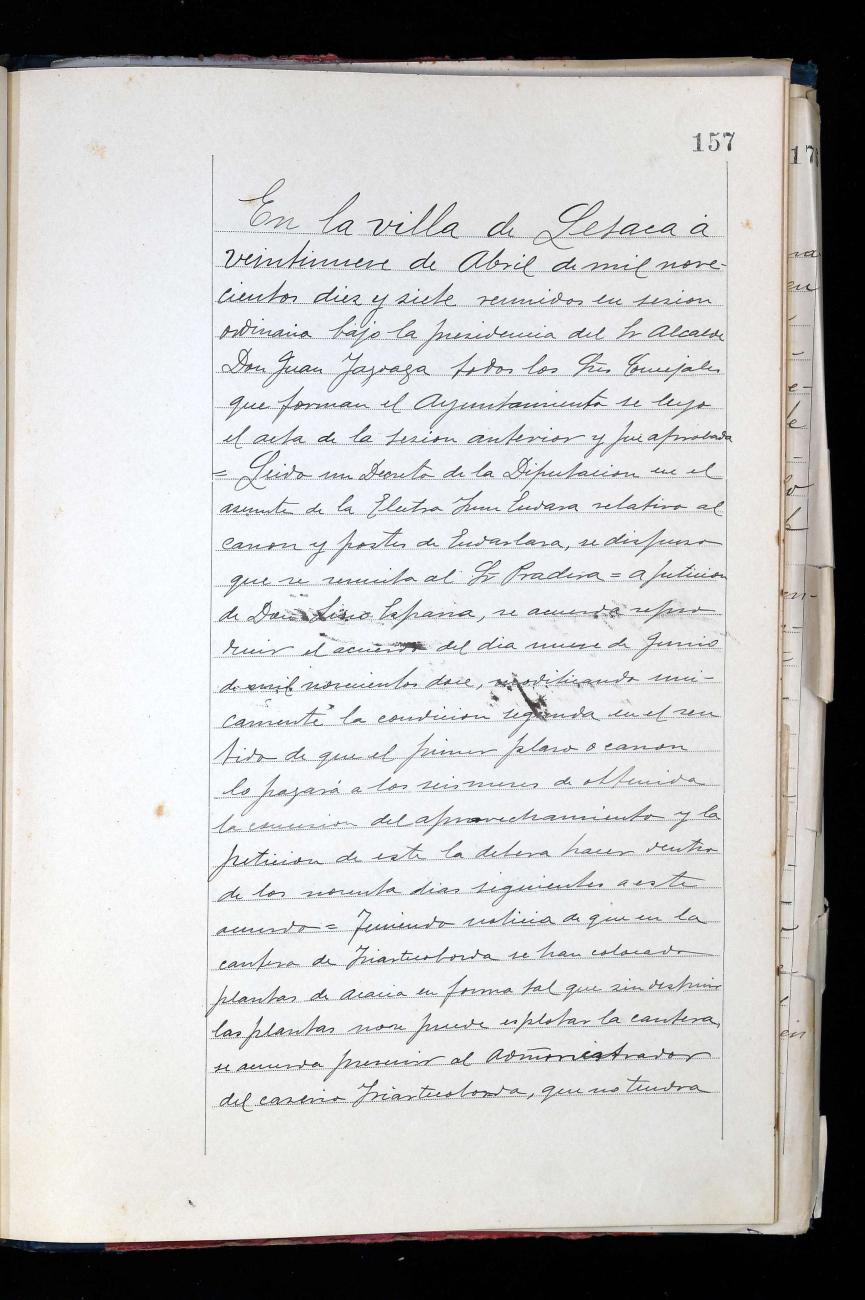 157
En la villa de Lesaca á
veintinueve de Abril de mil nove-
cientos diez y siete reunidos en sesion
ordinaria bajo la presidencia del Sr Alcalde
Don Juan Jagoaga todos los Sres Concejales
que forman el Ayuntamiento se leyo
el acta de la sesion anterior y fue aprobada
= Leido un Decreto de la Diputacion en el
asunto de la Electra Irun Endara relativo al
canon y postes de Endarlara, se dispuso
que se remita al Sr Pradera = a peticion
de Don España, se acuerda repro
ducir el acuerdo del dia nueve de Junio
de mil novecientos doce, modificando uni-
camente la condicion segunda en el sen
tido de que el primer plazo o canon
lo pagará a los seis meses de obtenida
la concesion del aprovechamiento y la
peticion de este la debera hacer dentro
de los noventa dias siguientes a este
acuerdo = Teniendo noticia de que en la
cantera de Iriartecoborda se han colocado
plantas de acacia en forma tal que sin destruir
las plantas no se puede esplotar la cantera,
se acuerda prevenir al Administrador
del caserio Iriartecoborda, que no tendra